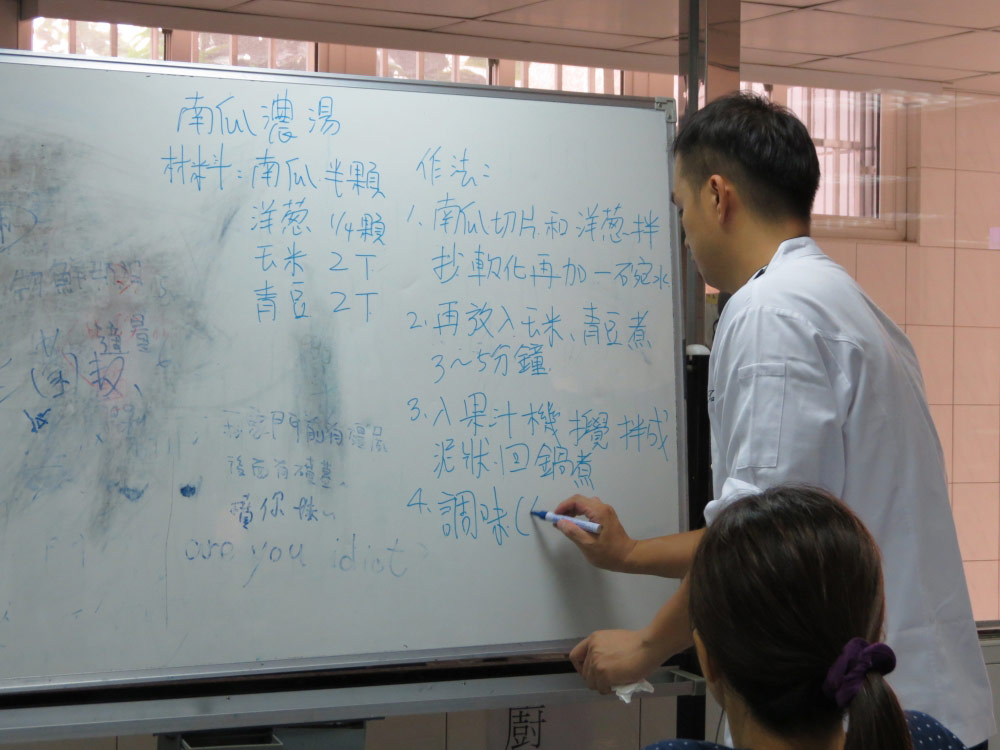 南瓜濃湯
材料：南瓜 半顆
洋葱 1/4顆
玉米 2T
青豆 2T
作法：
1. 南瓜切片和洋葱拌
抄軟化再加一碗水
2. 再放入玉米、青豆煮
3～5分鐘
3. 入果汁機攪拌成
泥狀.回鍋煮
4. 調味(
are you idiot?
廚